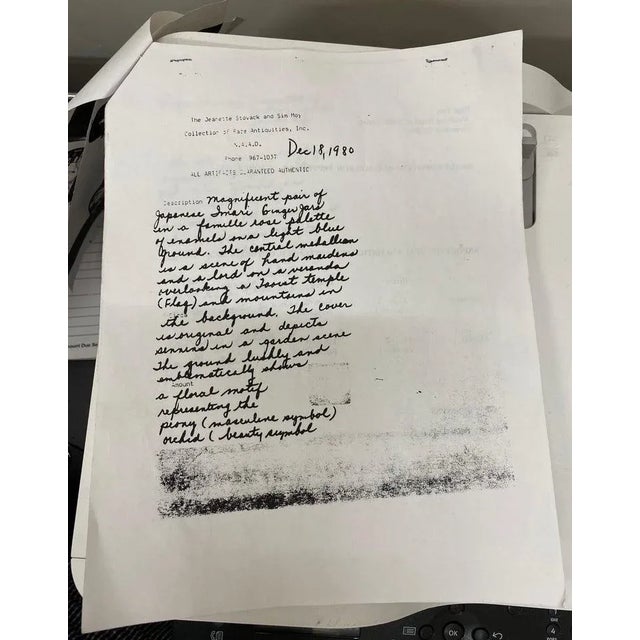 The Jeanette Stovack and Sim Moy
Collection of Rare Antiquities, Inc.
N.A.A.D.
Phone 967-1037 Dec 18, 1980
ALL ARTIFACTS GUARANTEED AUTHENTIC
Description Magnificent pair of
Japanese Imari Ginger Jars
in a famille rose palette
of enamels on a light blue
ground. The central medallion
is a scene of hand maidens
and a lord on a veranda
overlooking a Taoist temple
(Flag) and mountains in
the background. The cover
is original and depicts
sennins in a garden scene
The ground lushly and
emblematically shows
Amount
a floral motif
representing the
peony (masculine symbol)
orchid (beauty symbol
OK